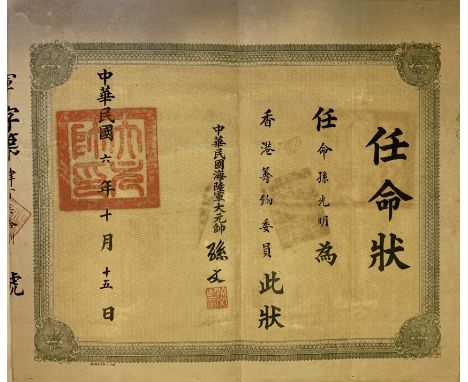 任命狀
任命孫光明為
香港籌餉委員此狀
中華民國海陸軍大元帥
孫文
大元
帥印
中華民國六年十月十五日
字第
號